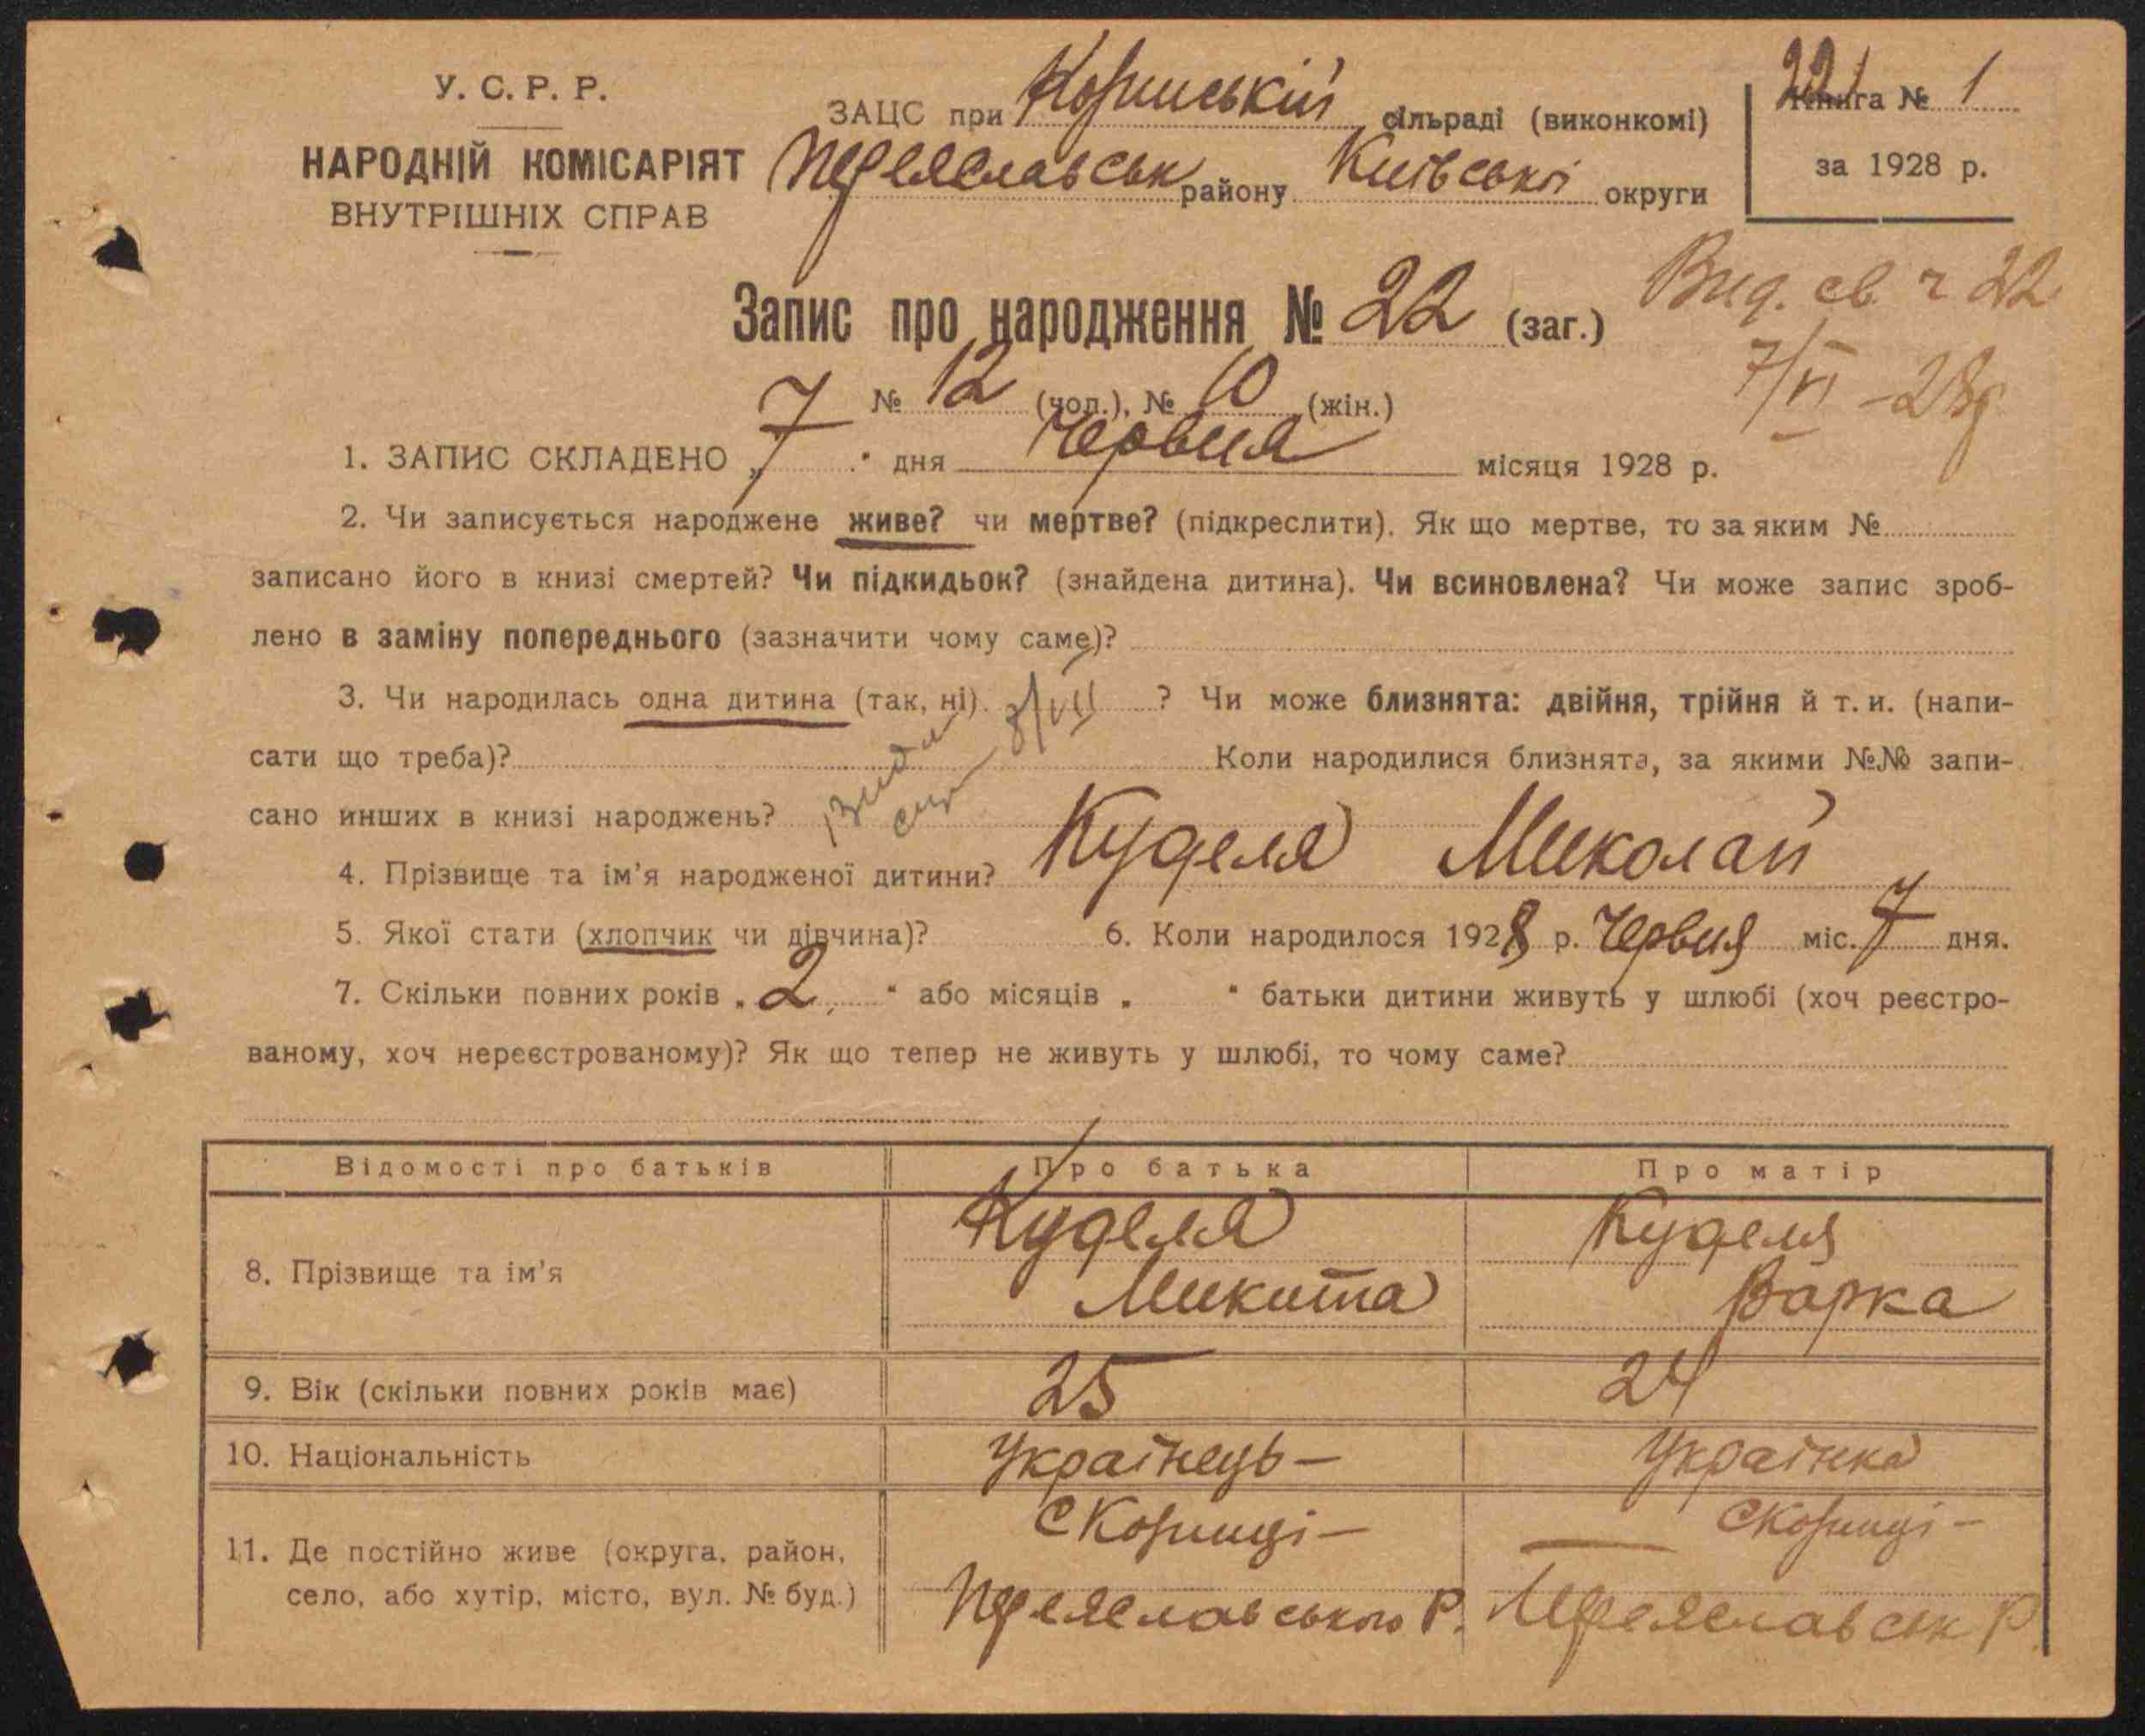 У. С. Р. Р.
НАРОДНІЙ КОМІСАРІЯТ
ВНУТРІШНІХ СПРАВ
ЗАЦС при Помиській сільраді (виконкомі)
Переяславськ району Київської округи
221
Книга № 1
за 1928 р.
Запис про народження № 22 (заг.)
Вид. св. ч 22
7/VI - 28р
№ 12 (чол.), № 10 (жін.)
1. ЗАПИС СКЛАДЕНО „ 7 " дня Червня місяця 1928 р.
2. Чи записується народжене живе? чи мертве? (підкреслити). Як що мертве, то за яким №
записано його в книзі смертей? Чи підкидьок? (знайдена дитина). Чи всиновлена? Чи може запис зроб-
лено в заміну попереднього (зазначити чому саме)?
3. Чи народилась одна дитина (так, ні). ? Чи може близнята: двійня, трійня й т. и. (напи-
сати що треба)? Коли народилися близнята, за якими №№ запи-
сано инших в книзі народжень?
8/VII
4. Прізвище та ім'я народженої дитини? Куделя Миколай
5. Якої стати (хлопчик чи дівчина)? 6. Коли народилося 1928 р. Червня міс. 7 дня.
7. Скільки повних років „ 2 " або місяців „ " батьки дитини живуть у шлюбі (хоч реєстро-
ваному, хоч нереєстрованому)? Як що тепер не живуть у шлюбі, то чому саме?
Відомості про батьків Про батька Про матір
8. Прізвище та ім'я
Куделя Микита
Куделя Варка
9. Вік (скільки повних років має) 25 24
10. Національність Українець — Українка
11. Де постійно живе (округа, район,
село, або хутір, місто, вул. № буд.)
Переяславського Р.
Переяславськ Р.